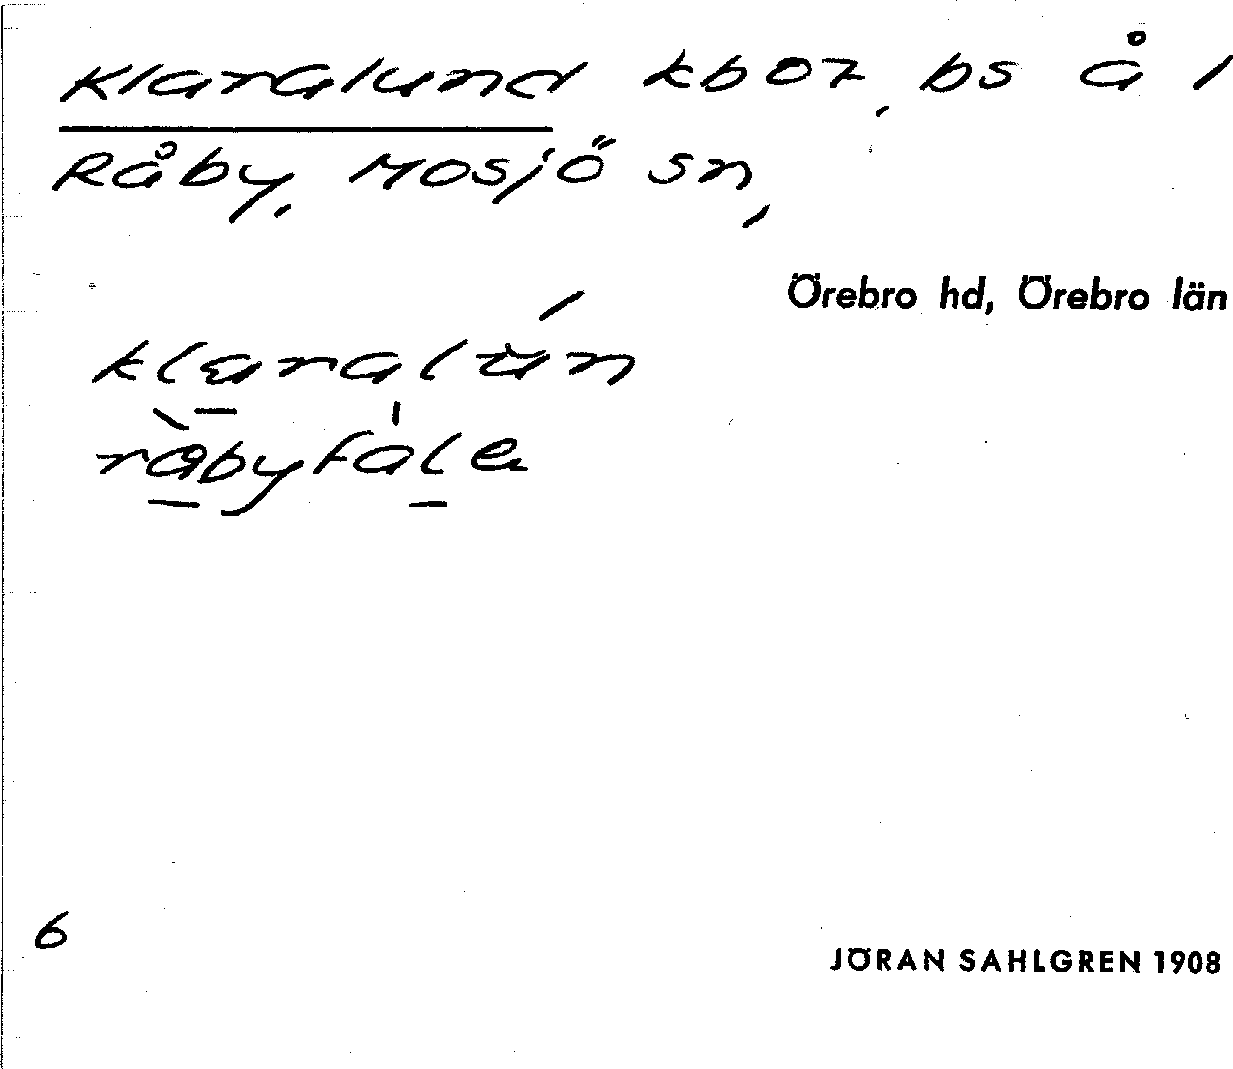 Klaralund kb07, bs å 1
Råby, Mosjö sn,
Örebro hd, Örebro län
klaralún
råbyfále
6
JÖRAN SAHLGREN 1908